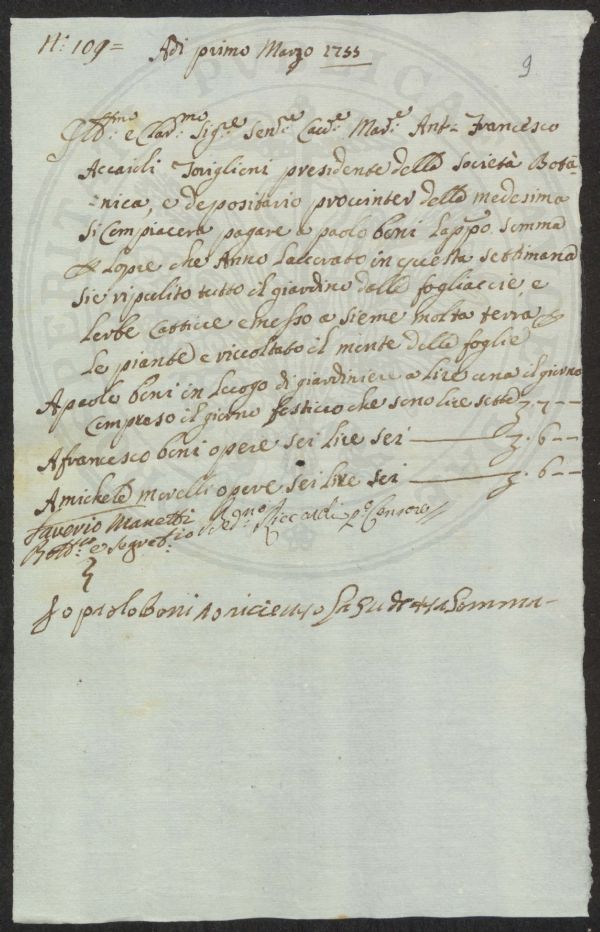 N: 109=
Adi primo Marzo 1755
9
Ill:mo e Clar:mo Sig:re Sen:re Cav:e Mar:e Ant: Francesco
Acciaioli Toriglioni presidente della Società Bota=
=nica, e depositario proccinter della medesima
si Compiacera pagare a paolo boni Lapp:o Somma
& Lopre che Anno Lavorato in questa settimana
sie ripulito tutto il giardino dalle fogliaccie e
Lerbe Cattive e messo a sieme molta terra
Le piante e riccoltato il monte delle foglie
A paolo boni in Luogo di giardiniere a Lire una il giorno
Compreso il giorno festivo che sono lire sette 7--
A francesco boni opere sei lire sei 6--
A michele morelli opere sei lire sei 6--
Saverio Manetti
Bott:co e Segret:rio Riccardi p:o Censore
Io paolo boni o riceuto La Su detta Somma-